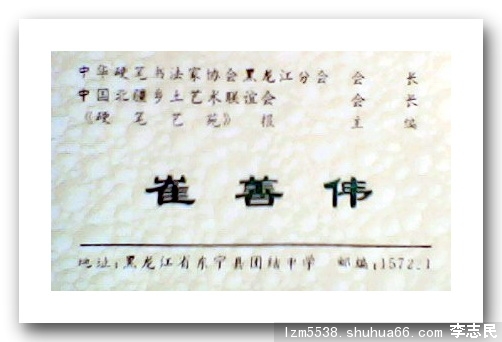 中华硬笔书法家协会黑龙江分会 会 长
中国北疆乡土艺术联谊会 会 长
《硬 笔 艺 苑》 报 主 编
崔 善 伟
地址:黑龙江省东宁县团结中学 邮编:1572.1
lzm5538.shuhua66.com 李志民